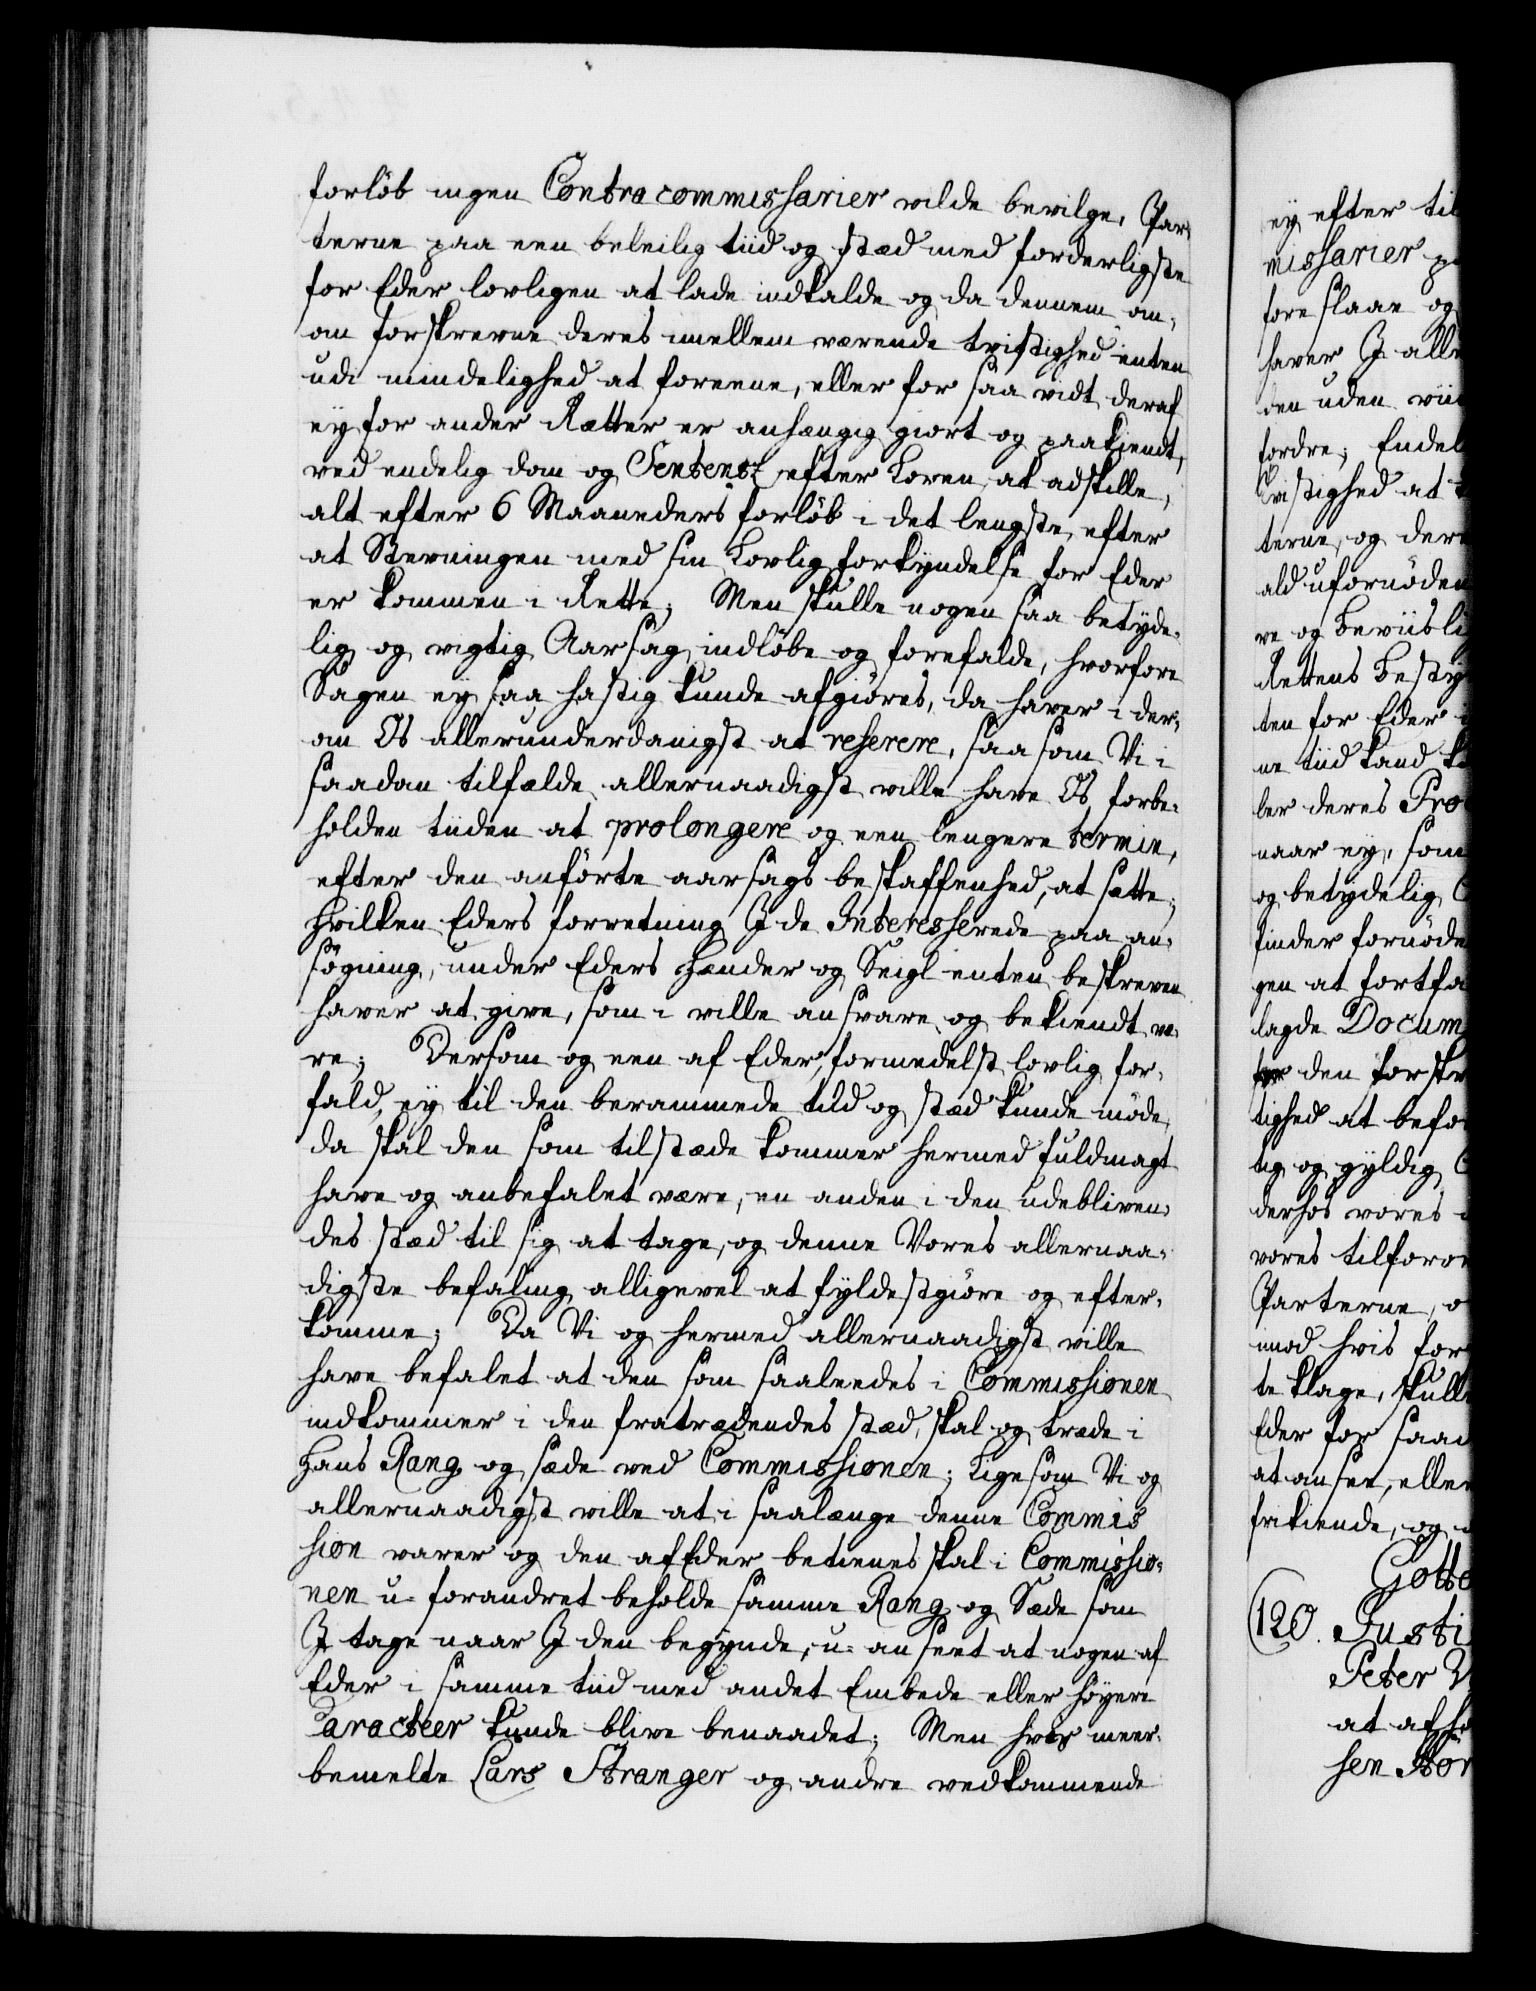 forløb ingen Contracommissarier vilde bevilge, Par-
terne paa een beleilig tiid og stæd med forderligste
for Eder lovligen at lade indkalde og da dennem om,
om forskrevne deres imellem værende tvistighed enten
udi mindelighed at foreene, eller for saa vidt deraf
ey for ander Rætter er anhængig giort og paakiendt,
ved endelig dom og Sentenz efter Loven at adskille,
alt efter 6 Maaneders forløb i det lengste, efter
at Stevningen med sin Lovlig forkyndelse for Eder
er kommen i Rette; Men skulle nogen saa betyde-
lig og vigtig Aarsag indløbe og forefalde, hvorfore
Sagen ey saa hastig kunde afgiøres, da haver i der-
om Os allerunderdanigst at referere, saa som Vi i
saadan tilfælde allernaadigst ville have Os forbe-
holden tiiden at prolongere og een lengere termin,
efter den anførte aarsags beskaffenhed, at sætte;
hvilken Eders forretning I de Interesserede paa an-
søgning, under Eders Hænder og Seigl enten beskreven
haver at give, som i ville ansvare og bekiendt væ-
re; Dersom og een af Eder, formedelst lovlig for-
fald, ey til den berammede tiid og stæd kunde møde,
da skal den som tilstæde kommer hermed fuldmagt
have og anbefalet være, en anden i den udebliven-
des stæd til sig at tage, og denne Vores allernaa-
digste befaling alligevel at fyldestgiøre og efter-
komme; Da Vi og hermed allernaadigst ville
have befalet at den som saaleedes i Commissionen
indkommer i den fratrædendes stæd, skal og træde i
Hans Rang og sæde ved Commissionen; Ligesom Vi og
allernaadigst ville at i saalænge denne Commis
sion varer og den af Eder betienes skal i Commissio-
nen u-forandret beholde samme Rang og Sæde som
I tage naar I den begynde, u-anseet at nogen af
Eder i samme tiid med andet Embede eller høyere
Caracteer kunde blive benaadet; Men hvis meer-
bemelte Lars Stranger og andre vedkommende
ey efter til
missarier pa
foreslaae og
haver I alle
den uden vii
fordre; Endel
tvistighed at
terne, og der
ald ufornøden
re og beviisli
Rettens besty
ten for Eder i
ne tiid kand k
ler deres Pro
naar ey, som
og betydelig
finder fornøde
gen at fortfa
lagde Docum
den forskr
tighed at befo
tig og gyldig
derhos vores
vores tilforor
Parterne, o
imod hvis for
te klage, skulle
Eder for saad
at ansee, eller
frikiende, og
Gotto
120. Justi
Peter
at afh
sen Stor